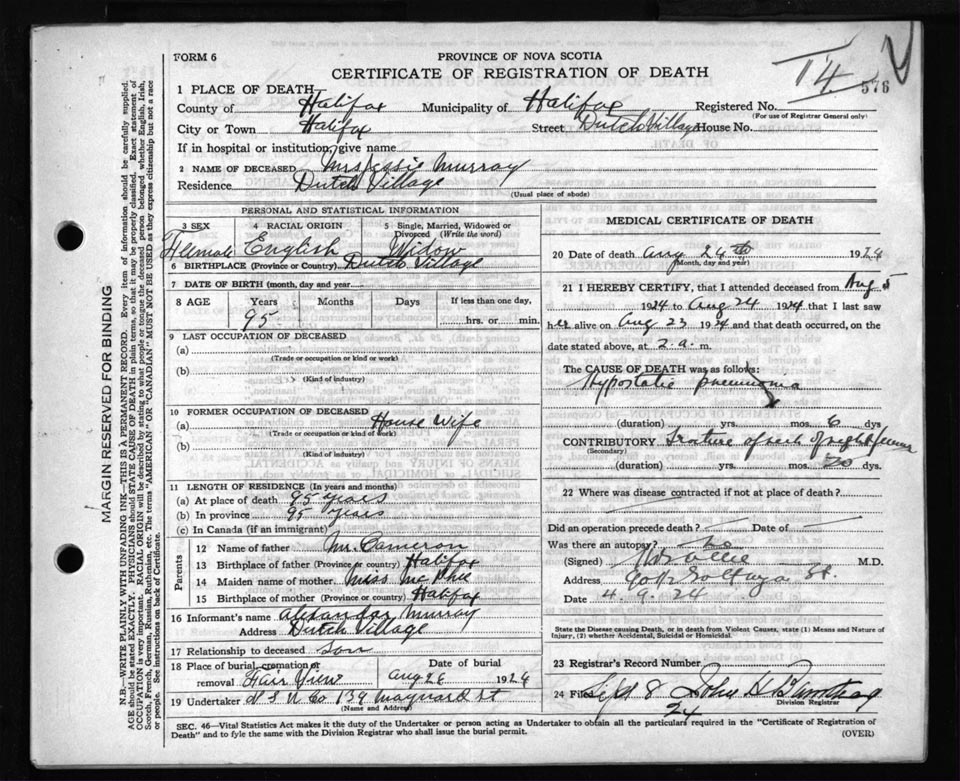 FORM 6
PROVINCE OF NOVA SCOTIA
CERTIFICATE OF REGISTRATION OF DEATH
T4
576
1 PLACE OF DEATH
County of Halifax Municipality of Halifax Registered No.
(For use of Registrar General only)
City or Town Halifax Street Dutch Village House No.
If in hospital or institution, give name
2 NAME OF DECEASED Mrs Jessie Murray
Residence Dutch Village
(Usual place of abode)
PERSONAL AND STATISTICAL INFORMATION
3 SEX 4 RACIAL ORIGIN 5 Single, Married, Widowed or Divorced (Write the word)
Female English Widow
6 BIRTHPLACE (Province or Country) Dutch Village
7 DATE OF BIRTH (month, day and year)
8 AGE Years Months Days If less than one day,
95 hrs. or min.
9 LAST OCCUPATION OF DECEASED
(a)
(Trade or occupation or kind of work)
(b)
(Kind of industry)
10 FORMER OCCUPATION OF DECEASED
(a) House Wife
(Trade or occupation or kind of work)
(b)
(Kind of industry)
11 LENGTH OF RESIDENCE (In years and months)
(a) At place of death 95 years
(b) In province 95 years
(c) In Canada (if an immigrant)
Parents
12 Name of father Mr. Cameron
13 Birthplace of father (Province or country) Halifax
14 Maiden name of mother Miss McPhee
15 Birthplace of mother (Province or country) Halifax
16 Informant's name Alexandar Murray
Address Dutch Village
17 Relationship to deceased son
18 Place of burial, cremation or removal Fair View Date of burial Aug 26 1924
19 Undertaker N S U Co 139 Maynard St
(Name and Address)
MEDICAL CERTIFICATE OF DEATH
20 Date of death Aug 24th 1924
(Month, day and year)
21 I HEREBY CERTIFY, that I attended deceased from Aug 5
1924 to Aug 24 1924 that I last saw
her alive on Aug 23 1924 and that death occurred, on the
date stated above, at 2. a. m.
The CAUSE OF DEATH was as follows:
Hypostatic pneumonia
(duration) yrs. mos. 6 dys
CONTRIBUTORY of neck of right femur
(Secondary)
(duration) yrs. mos. 20 dys.
22 Where was disease contracted if not at place of death?
Did an operation precede death? Date of
Was there an autopsy? no
(Signed) M.D.
Address St.
Date 4. 9. 24
State the Disease causing Death, or in death from Violent Causes, state (1) Means and Nature of
Injury, (2) whether Accidental, Suicidal or Homicidal.
23 Registrar's Record Number
24 Filed Sept 8 24 John H
Division Registrar
SEC. 46—Vital Statistics Act makes it the duty of the Undertaker or person acting as Undertaker to obtain all the particulars required in the "Certificate of Registration of
Death" and to fyle the same with the Division Registrar who shall issue the burial permit.
(OVER)
MARGIN RESERVED FOR BINDING
N.B.—WRITE PLAINLY WITH UNFADING INK—THIS IS A PERMANENT RECORD. Every item of information should be carefully supplied.
AGE should be stated EXACTLY. PHYSICIANS should STATE CAUSE OF DEATH in plain terms, so that it may be properly classified. Exact statement of
OCCUPATION is very important. RACIAL ORIGIN will be described by stating to what people or tongue the deceased person belonged whether English, Irish,
Scotch, French, German, Russian, Ruthenian, etc. The terms "AMERICAN" or "CANADIAN" MUST NOT BE USED as they express citizenship but not a race
or people. See instructions on back of Certificate.